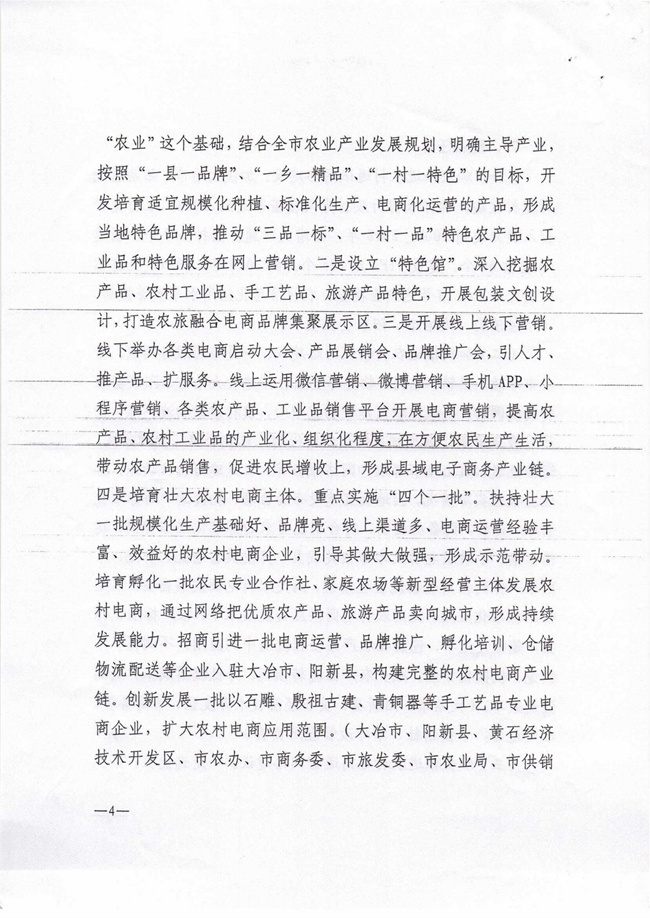 “农业”这个基础，结合全市农业产业发展规划，明确主导产业，
按照“一县一品牌”、“一乡一精品”、“一村一特色”的目标，开
发培育适宜规模化种植、标准化生产、电商化运营的产品，形成
当地特色品牌，推动“三品一标”、“一村一品”特色农产品、工
业品和特色服务在网上营销。二是设立“特色馆”。深入挖掘农
产品、农村工业品、手工艺品、旅游产品特色，开展包装文创设
计，打造农旅融合电商品牌集聚展示区。三是开展线上线下营销。
线下举办各类电商启动大会、产品展销会、品牌推广会，引人才、
推产品、扩服务。线上运用微信营销、微博营销、手机 APP、小
程序营销、各类农产品、工业品销售平台开展电商营销，提高农
产品、农村工业品的产业化、组织化程度，在方便农民生产生活，
带动农产品销售，促进农民增收上，形成县域电子商务产业链。
四是培育壮大农村电商主体。重点实施“四个一批”。扶持壮大
一批规模化生产基础好、品牌亮、线上渠道多、电商运营经验丰
富、效益好的农村电商企业，引导其做大做强，形成示范带动。
培育孵化一批农民专业合作社、家庭农场等新型经营主体发展农
村电商，通过网络把优质农产品、旅游产品卖向城市，形成持续
发展能力。招商引进一批电商运营、品牌推广、孵化培训、仓储
物流配送等企业入驻大冶市、阳新县，构建完整的农村电商产业
链。创新发展一批以石雕、殷祖古建、青铜器等手工艺品专业电
商企业，扩大农村电商应用范围。（大冶市、阳新县、黄石经济
技术开发区、市农办、市商务委、市旅发委、市农业局、市供销
—4—